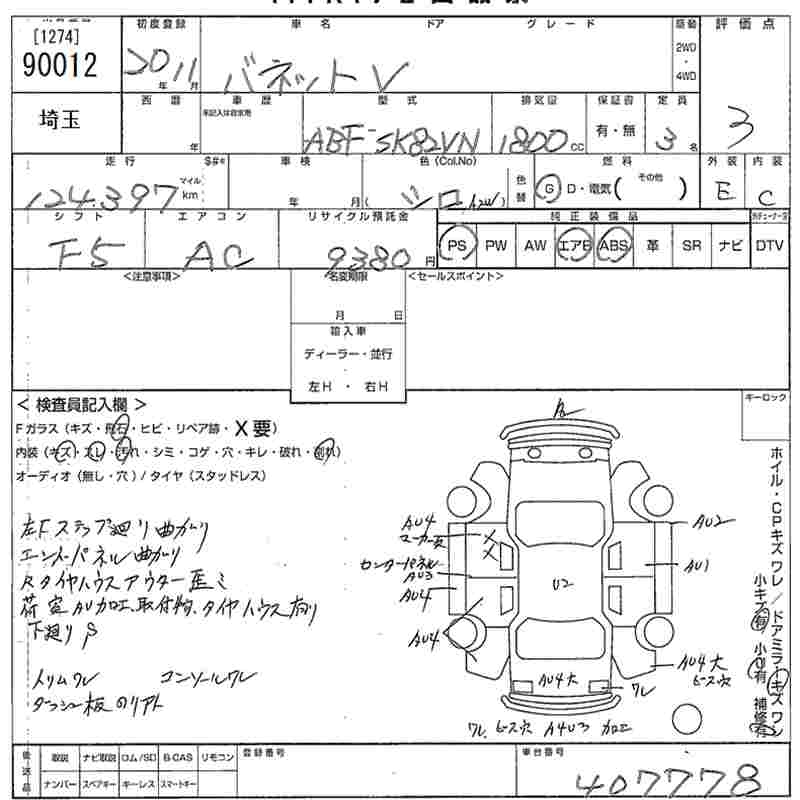 [1274]
90012
初度登録
車名
ドア
グレード
駆動
評価点
20 年 11 月
バネットV
2WD
・
4WD
3
埼玉
西暦
車歴
型式
排気量
保証書
定員
年
ABF-SK82VN
1800 cc
有・無
3 名
走行
$#*
車検
色(Col,No)
燃料
外装
内装
124,397
マイル
km
年
月
シロ
色替
G D・電気( その他 )
E
C
シフト
エアコン
リサイクル預託金
純正装備品
F5
AC
9380 円
PS PW AW エアB ABS 革 SR ナビ DTV
<注意事項>
名変期限
<セールスポイント>
月 日
輸入車
ディーラー・並行
左H ・ 右H
< 検査員記入欄 >
キーロック
Fガラス (キズ・飛石・ヒビ・リペア跡・X要)
内装 (キズ・スレ・汚れ・シミ・コゲ・穴・キレ・破れ・割れ)
オーディオ (無し・穴) / タイヤ (スタッドレス)
左Fステップ廻り曲がり
エンドパネル曲がり
Rタイヤハウスアウター歪ミ
荷室AU加工、取付物、タイヤハウス有り
下廻りS
トリムワレ コンソールワレ
ダッシュ板のリアト
AU4
センターパネル
AU3
AU4
AU4
U2
AU2
AU1
AU4大
ビース穴
AU4大
ワレ
ワレ ビース穴 A4U3 加工
ホイル・CPキズ ワレ / ドアミラーキズ ワレ
小キズ有 小U有 補修有
後送品
取説 ナビ取説 ロム/SD B-CAS リモコン
ナンバー スペアキー キーレス スマートキー
登録番号
車台番号
407778